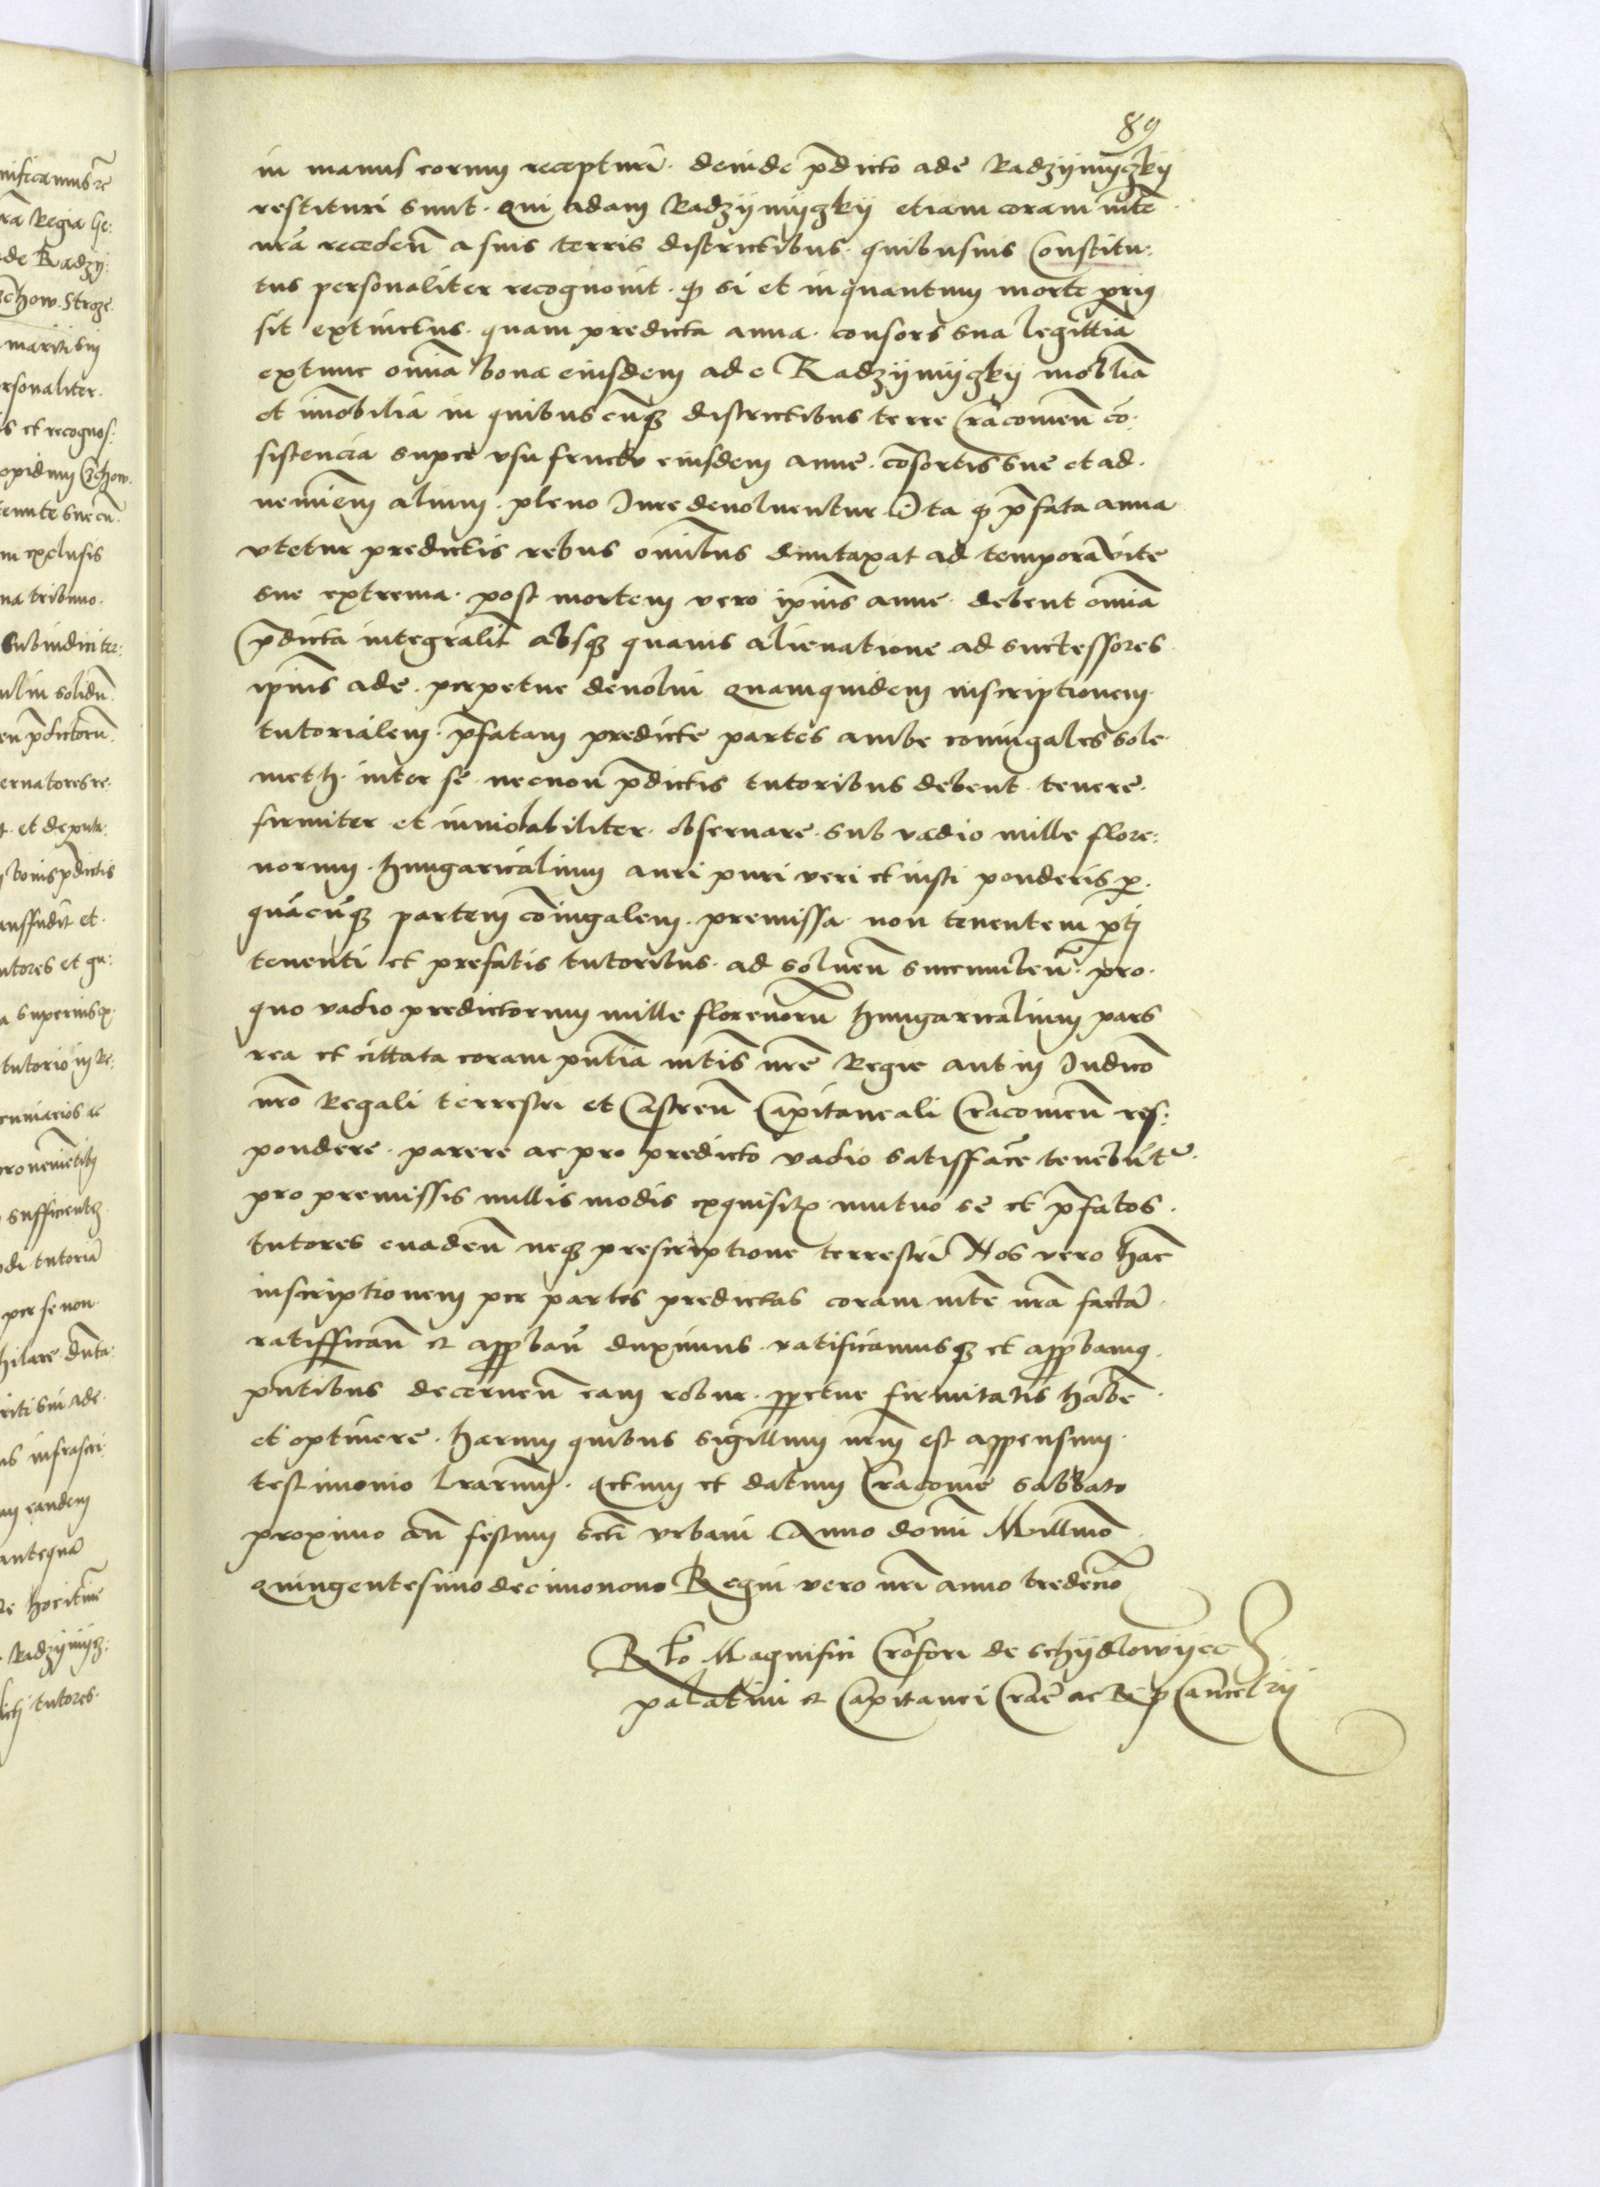 89
in manus eorum recepturi. deinde p̄dicto ade Radzijmijgzkij
restituri sunt. qui adam Radzijmijgzkij etiam coram mt̄e
nr̄a receden̄ a suis terris districtibus. quibusuis Constitu:
tus personaliter recognouit. ꝙ si et inquantum morte prius
sit extinctus. quam predicta anna. consors sua legittīa
extunc om̄ia bona eiusdem ade Radzijmijgkij mobīlia
et im̄obilia in quibuscūqꝫ districtibus terre Cracouien̄ cō:
sistencia sup̄ce usu fructu eiusdem anne. cōsortis sue et ad.
nemīem alium. pleno Iure deuoluentur Ita ꝙ p̄fata anna
vtetur predictis rebus omībus duntaxat ad tempora vite
sue extrema. post mortem vero ip̄ius anne. debent om̄ia
p̄dicta integralit̄ absqꝫ quauis alienatione ad successores
ip̄ius ade. perpetue deuolui quamquidem inscriptionem.
tutorialem. p̄fatam predicte partes ambe coniugales sole
meth. inter se necnon p̄dictis tutoribus debent. tenere.
firmiter et inuiolabiliter. obseruare. sub vadio mille flore:
norum. hungaricalium auri puri veri et iusti ponderis p̱.
quācūqꝫ partem cōiugalem. premissa. non tenentem p̱ti
tenenti et prefatis tutoribus. ad soluen̄ succumben̄. pro.
quo vadio predictorum mille florenorū hungaricalium pars
rea et cittata coram pn̄tia mt̄is nr̄e Regie aut in Iudicō
nr̄o Regali terrestri et Castren̄ Capitaneali Cracouien̄ res:
pondere. parere ac pro predicto vadio satisffac̄e tenebūt᷑.
pro premissis nullis modis exquisitꝭ mutuo se et p̄fatos.
tutores euaden̄ neqꝫ prescriptione terrestri Nos vero hāc
inscriptionem per partes predictas coram mt̄e nr̄a factā.
ratiffican̄ et app̱ban̄ duximus. ratificamusqꝫ et app̱bamꝰ.
pn̄tibus decernen̄ eam robur. p̱petue firmitatis habē.
et optinere. harum quibus sigillum nr̄m est appensum.
testimonio lr̄arum. Actum et datum Cracouie sabbato
proximo an̄ festum sc̄ti vrbani Anno domī Millīmō
quingentesimo decimonono Regni vero nr̄i anno tredecīo
Rl̄o Magnifici Crōfori de schijdlowijec
palatini et Capitanei Crāc̄ ac R̄ p̄ Cancelrij